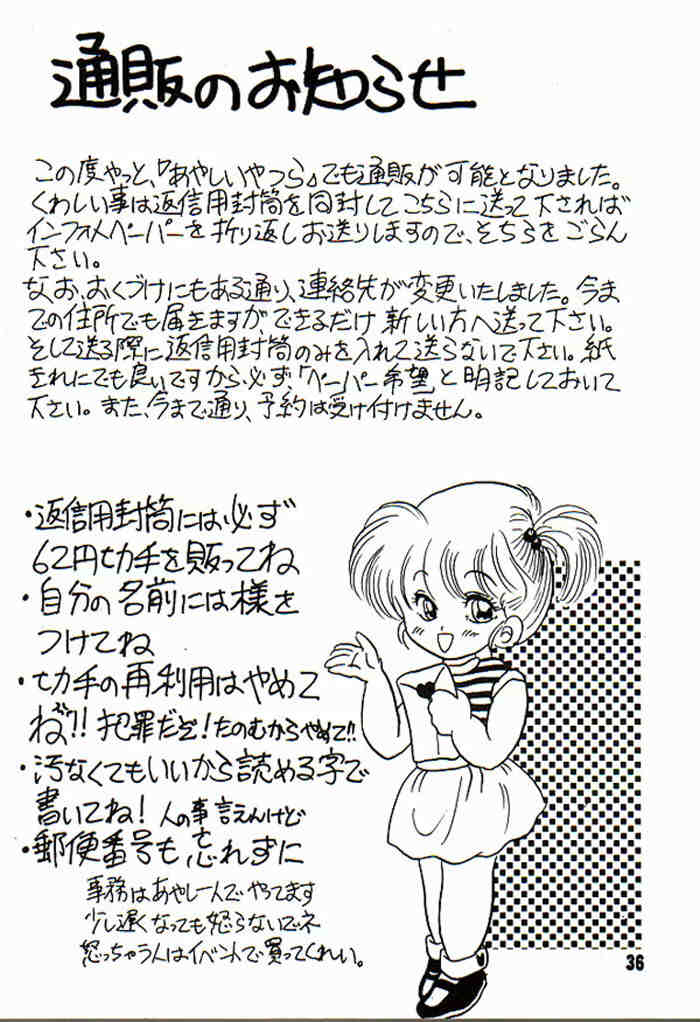 通販のお知らせ
この度やっと、『あやしいやつら』でも通販が可能となりました。
くわしい事は返信用封筒を同封してこちらに送って下されば
インフォメペーパーを折り返しお送りしますので、そちらをごらん
下さい。
なお、おくづけにもある通り、連絡先が変更いたしました。今ま
での住所でも届きますが、できるだけ新しい方へ送って下さい。
そして送る際に返信用封筒のみを入れて送らないで下さい。紙
きれにでも良いですから、必ず、「ペーパー希望」と明記しておいて
下さい。また、今まで通り、予約は受け付けません。
・返信用封筒には必ず
62円切手を貼ってね
・自分の名前には様を
つけてね
・切手の再利用はやめて
ね?!犯罪だぞ!たのむからやめて!!
・汚なくてもいいから読める字で
書いてね!人の事言えんけど
・郵便番号も忘れずに
事務はあやし一人でやってます
少し遅くなっても怒らないでネ
怒っちゃう人はイベントで買ってくれい。
36